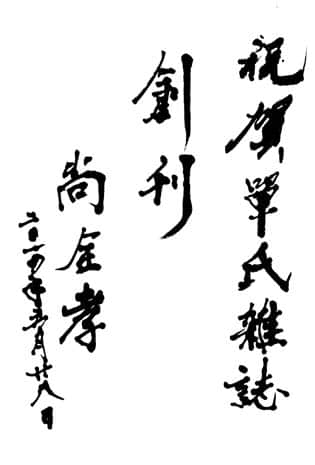 祝賀單氏雜誌
創刊
尚金孝
二〇一四年五月廿八日